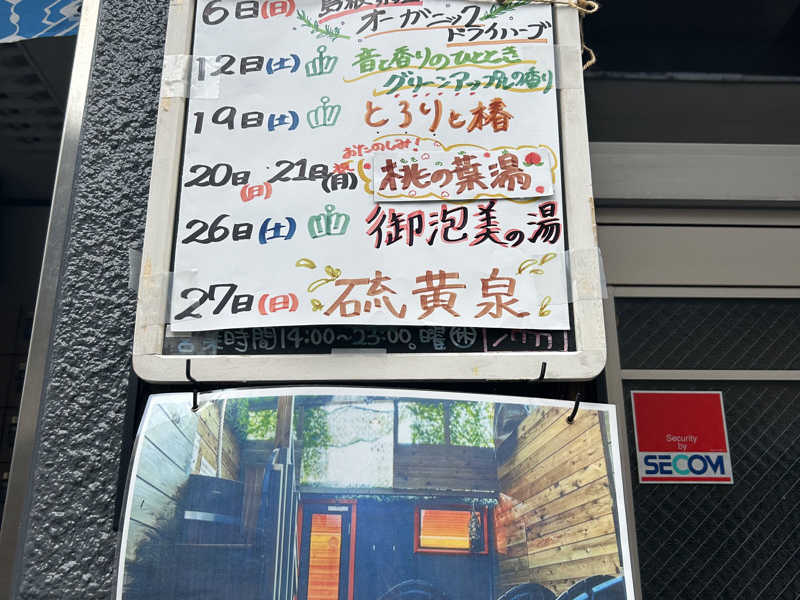 6日(日) 島根県産
オーガニック
ドライハーブ
12日(土) 音と香りのひととき
グリーンアップルの香り
19日(土) とろりと椿
おたのしみ!
20日(日) 21日祝(月) 桃の葉湯
26日(土) 御泡美の湯
27日(日) 硫黄泉
営業時間14:00~23:00 曜㊡
Security
by
SECOM